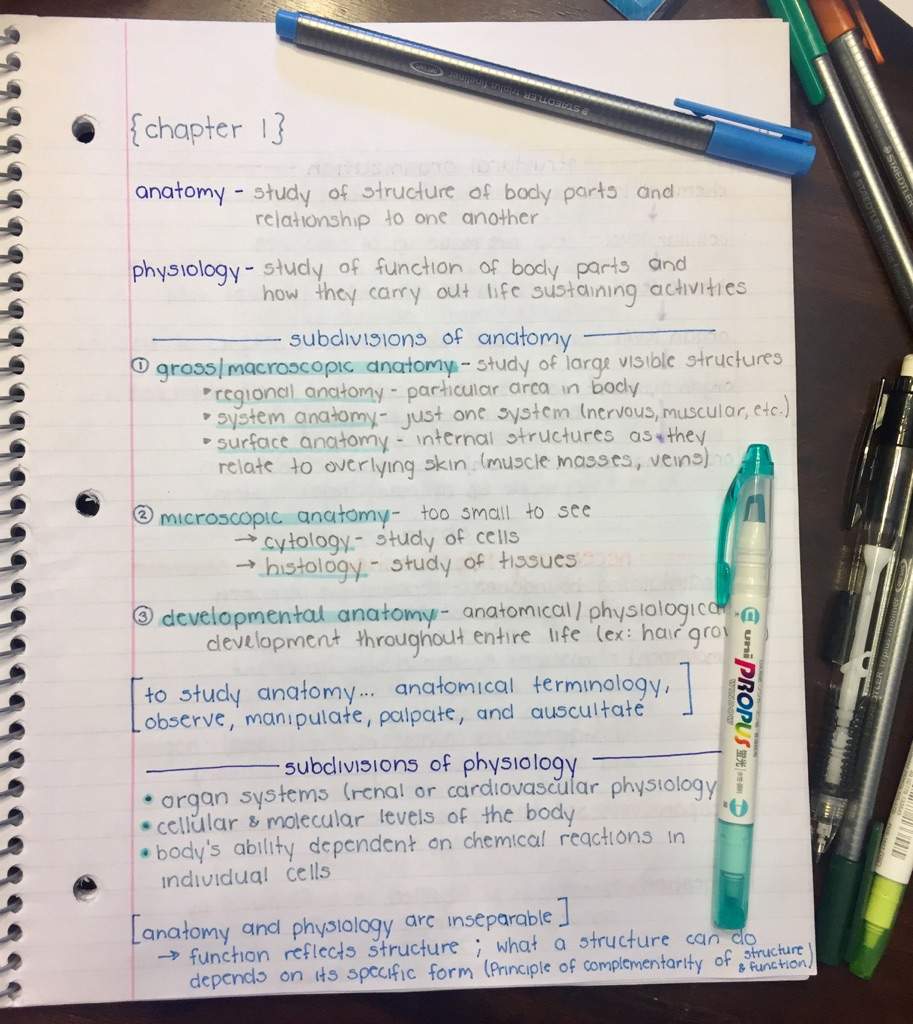 {chapter 1}
anatomy - study of structure of body parts and
relationship to one another
physiology - study of function of body parts and
how they carry out life sustaining activities
subdivisions of anatomy
① gross/macroscopic anatomy - study of large visible structures
• regional anatomy - particular area in body
• system anatomy - just one system (nervous, muscular, etc.)
• surface anatomy - internal structures as they
relate to overlying skin (muscle masses, veins)
② microscopic anatomy - too small to see
→ cytology - study of cells
→ histology - study of tissues
③ developmental anatomy - anatomical / physiological
development throughout entire life (ex: hair
[to study anatomy... anatomical terminology,
observe, manipulate, palpate, and auscultate]
subdivisions of physiology
• organ systems (renal or cardiovascular physiology
• cellular & molecular levels of the body
• body's ability dependent on chemical reactions in
individual cells
[anatomy and physiology are inseparable]
→ function reflects structure ; what a structure can do
depends on its specific form (Principle of complementarity of structure & function)
STAEDTLER triplus fineliner
STAEDTLER
STAEDTLER
uni PROPUS
蛍光